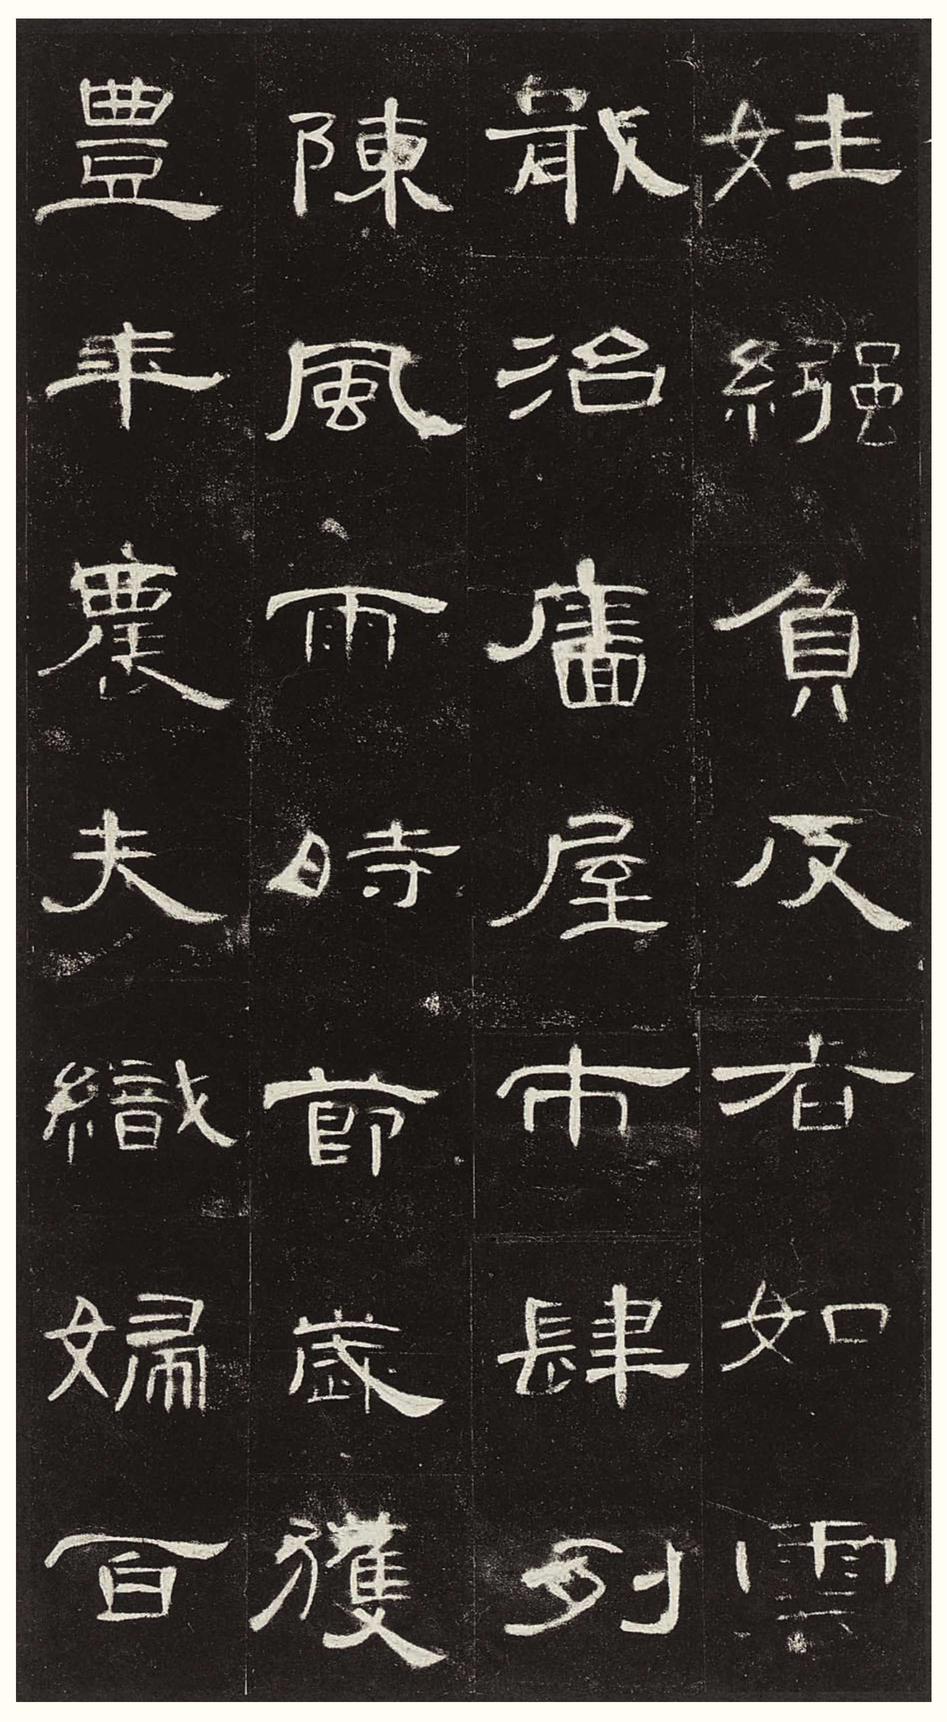 姓繦負反者如雲
戢治廧屋市肆列
陳風雨時節歲獲
豊年農夫織婦百